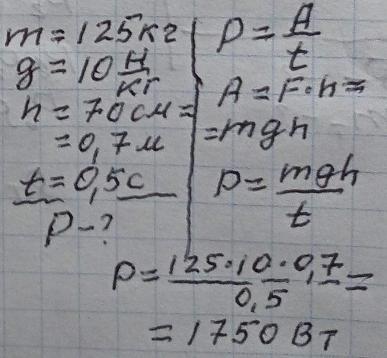 m = 125 кг
g = 10 Н/кг
h = 70 см =
= 0,7 м
t = 0,5 с
P - ?
P = A/t
A = F · h =
= mgh
P = mgh/t
P = 125 · 10 · 0,7/0,5 =
= 1750 Вт